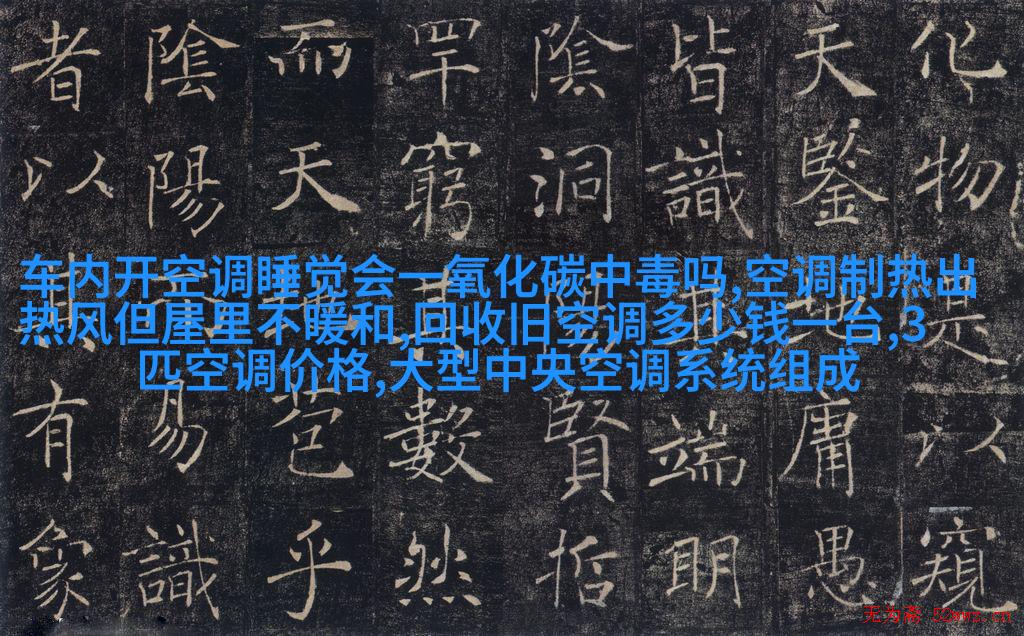 化物是以窺
天鑒地庸愚
皆識其端明
陰洞陽賢哲
罕窮其數然
而天地苞乎
陰陽而易識
者以其有象
车内开空调睡觉会一氧化碳中毒吗,空调制热出
热风但屋里不暖和,回收旧空调多少钱一台,3
匹空调价格,大型中央空调系统组成
无为斋 52wwz.cn